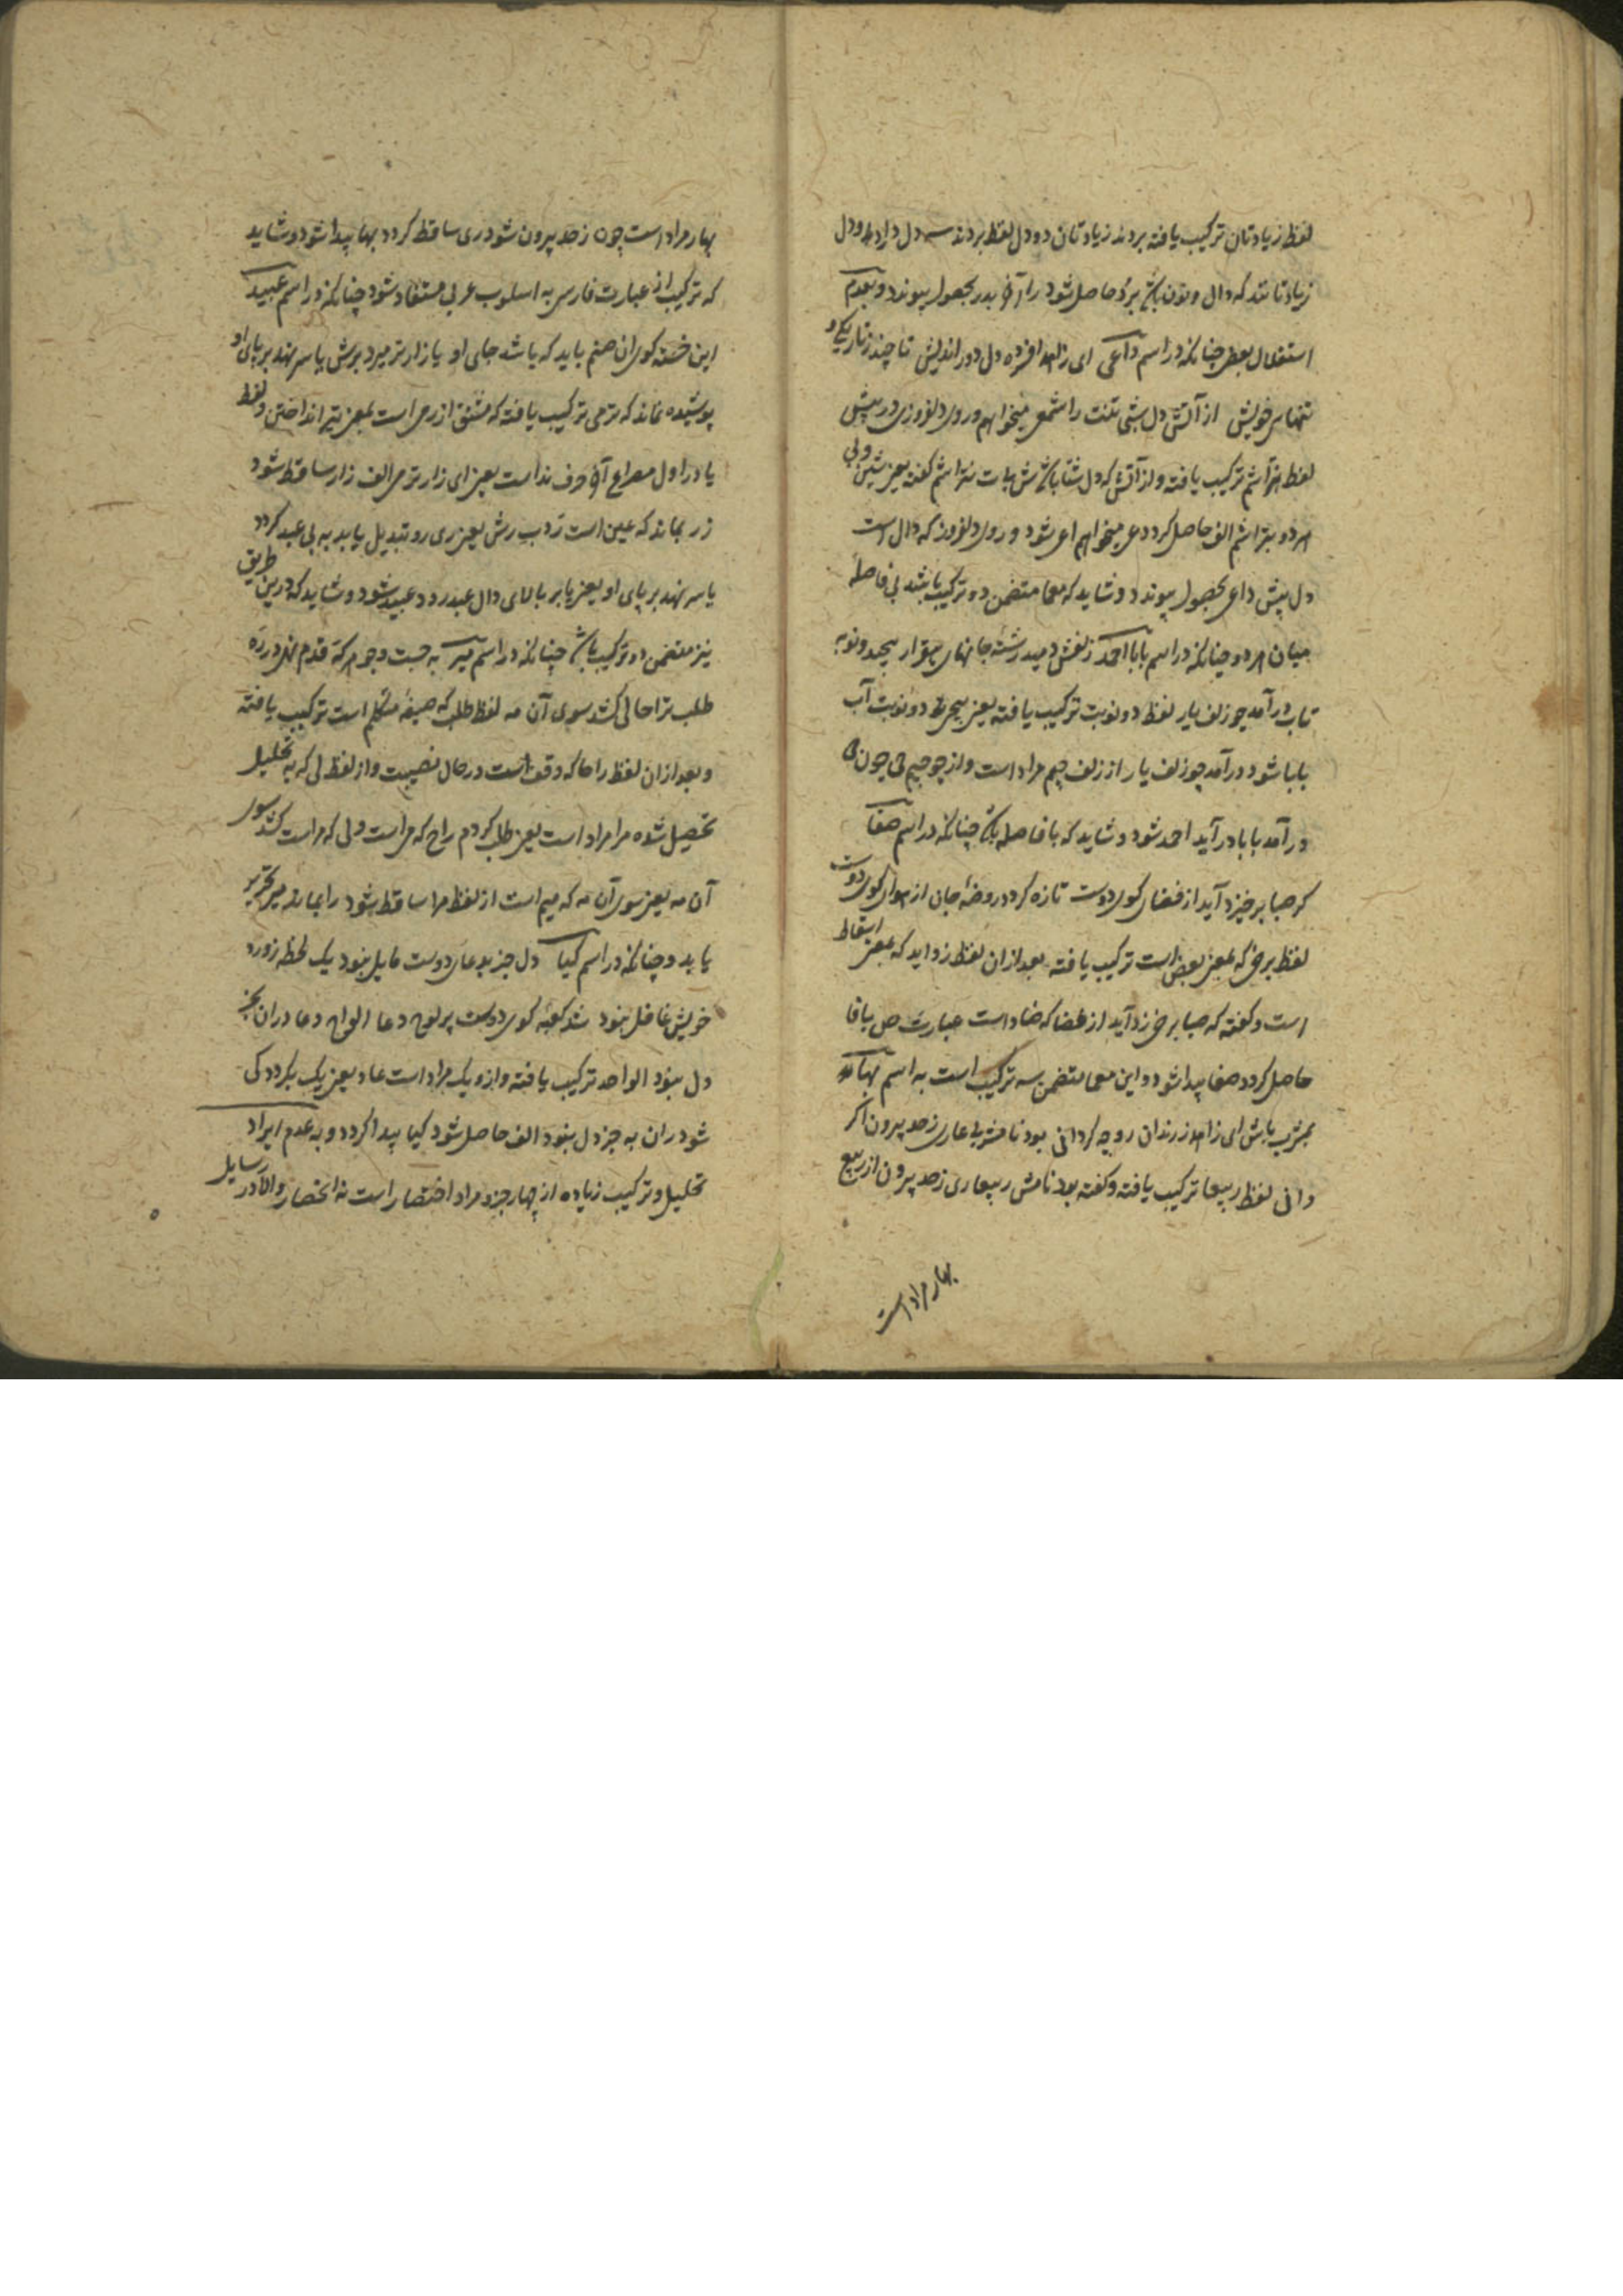 لفظ زیادتان ترکیب یافته بردند زیادتان دو دل لفظ بردند سه دل دارد و دل
زیادتا نند که دال و نون باشد برد حاصل شود را آخر بدر بحصول پیوندد و بعدم
استقلال بعض چنانکه در اسم داعی ای زلف افزده دل دور اندیش تا چند ز تاریکی و
تنهای خویش از آتش دل شبی تنت را شمع میخواهم و روی دلفروزی در پیش
لفظ بتراشم ترکیب یافته و از آتش که دل شتا باشد ش بات بتراشم گفته یعنی شین و بی
هر دو بتراشم الف حاصل کردد عی میخواهم اعی شود و روی دلفروز که دال است
دل پیش داعی بحصول پیوندد و شاید که معما متضمن دو ترکیب باشد بی فاصله
میان هر دو چنانکه در اسم بابا احمد زلفش دمید رشته جانهای بیقرار پیچد و نوبه
تاب درآمد چو زلف یار لفظ دو نوبت ترکیب یافته یعنی دو نوبت آب
بابا شود درآمد چو زلف یار از زلف جیم مراد است و از چو جیم حی چون حی
درآمد بابا درآید احمد شود و شاید که با فاصله باشد چنانکه در اسم صفا
کر صبا برخیزد آید از فضای کوی دوست تازه کردد روضهٔ جان از هوای کوی دوست
لفظ برخی که بمعنی بعض است ترکیب یافته بعد از ان لفظ زد اید که بمعنی اسقاط
است و گفته که صبا برخی زد آید از فضا که ضاد است عبارت ص با فا
حاصل کردد صفا پیدا شود و این معما متضمن سه ترکیب است به اسم بها
بمشرب باش ای زاهد ز رندان رو چه کردانی بود نا مشربی عاری زحد بیرون اکر
دانی لفظ ربیعا ترکیب یافته و گفته بود نامش ربیعا ری زحد بیرون از ربیع
بهار مراد است
بهار مراد است چون زحد بیرون شود ری ساقط کردد بها پیدا شود و شاید
که ترکیب از عبارت فارسی به اسلوب عربی مستفاد شود چنانکه در اسم عبید
این خسته کوی ان صنم باید که باشد جای او یا زار تر میرد برش یا سر نهد بر پای او
پوشیده نماند که ترمی ترکیب یافته که مشتق از رمی است بمعنی تیر انداختن و لفظ
یا در اول مصراع آخر حرف نداست یعنی ای زار ترمی الف زار ساقط شود
زر بماند که عین است رد برش یعنی ری رو تبدیل یابد به بی عبد کردد
یا سر نهد بر پای او یعنی یا بر بالای دال عبد رود عبید شود و شاید که درین طریق
نیز متضمن دو ترکیب باشد چنانکه در اسم میر به جست و جو هر که قدم نهی در ره
طلب ترا حالی کشد سوی آن مه لفظ طلبه که صیغهٔ متکلم است ترکیب یافته
و بعد از ان لفظ را حا که وقف است در حال نصیبت و از لفظ لی که به تحلیل
تحصیل شده مرا مراد است یعنی طلب کردم راح که مر است ولی که مراست کشد سوی
آن مه یعنی سوی آن مه که میم است از لفظ مرا ساقط شود را بماند میر تحریر
یابد و چنانکه در اسم کیا دل جز بدعای دوست مایل نبود یک لحظه ز ورد
خویش غافل نبود شد کعبه کوی دوست پر لوح دعا الواح دعا در ان بجز
دل نبود الواحد ترکیب یافته و ازو یک مراد است عاد یعنی یک بکردد کی
شود ران به جز دل نبود الف حاصل شود کیا پیدا کردد و به عدم ایراد
تحلیل و ترکیب زیاده از چهار جزو مراد اختصار است نه انحصار و الا در رسایل